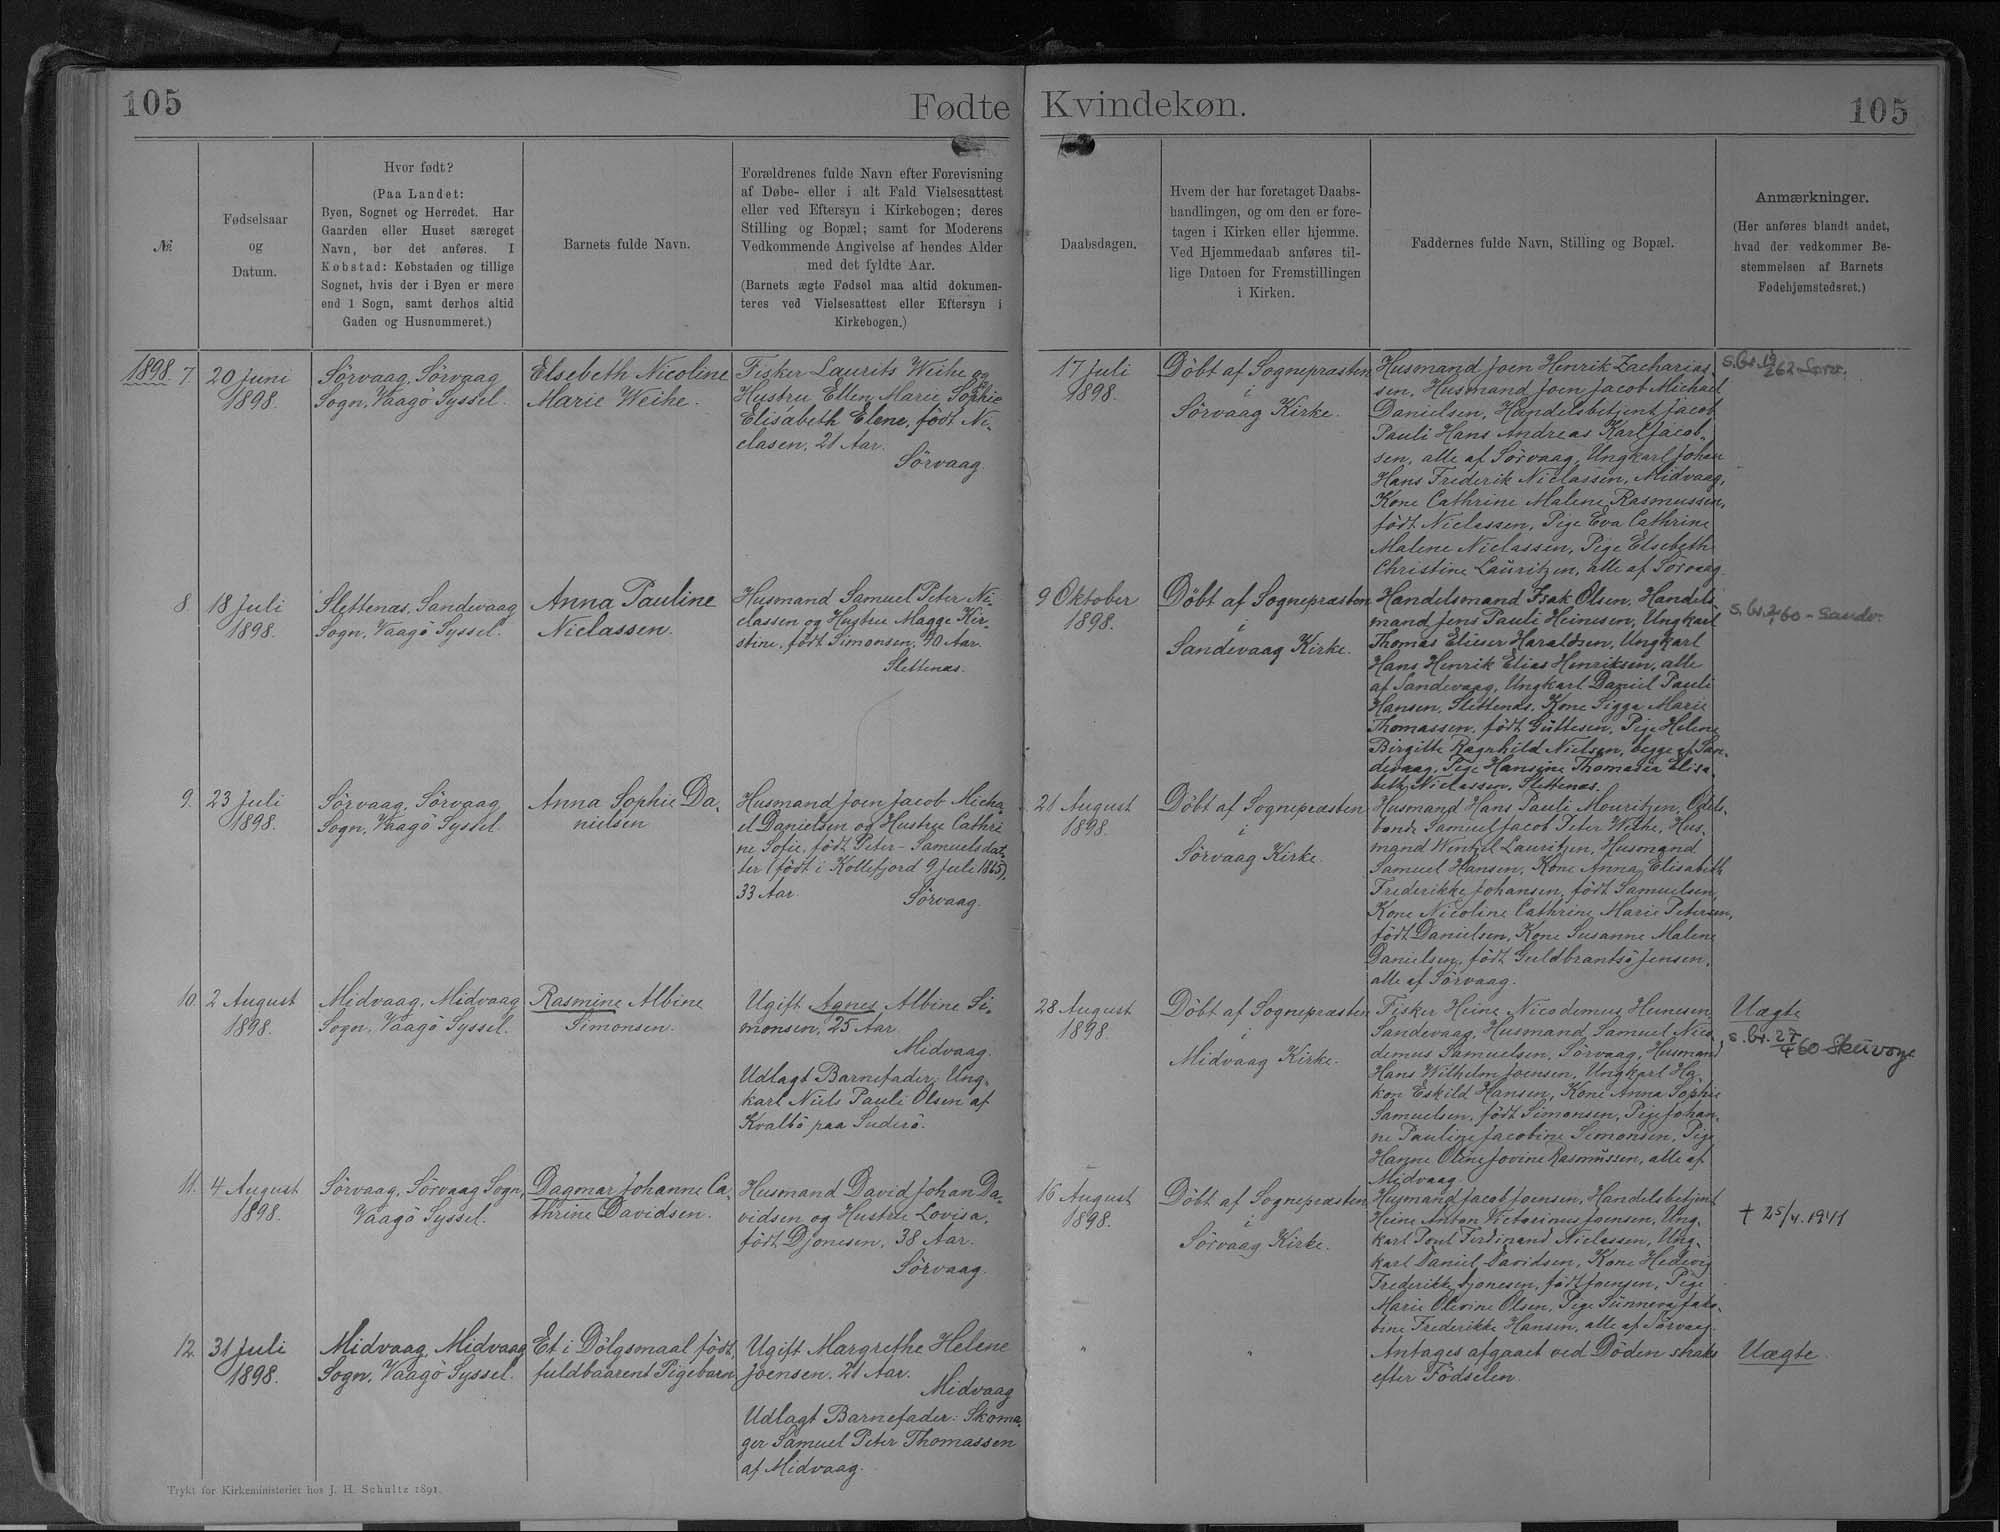 105
Fødte
Kvindekøn.
105
№
Fødselsaar
og
Datum.
Hvor født?
(Paa Landet:
Byen, Sognet og Herredet. Har
Gaarden eller Huset særeget
Navn, bør det anføres. I
Købstad: Købstaden og tillige
Sognet, hvis der i Byen er mere
end 1 Sogn, samt derhos altid
Gaden og Husnummeret.)
Barnets fulde Navn.
Forældrenes fulde Navn efter Forevisning
af Døbe- eller i alt Fald Vielsesattest
eller ved Eftersyn i Kirkebogen; deres
Stilling og Bopæl; samt for Moderens
Vedkommende Angivelse af hendes Alder
med det fyldte Aar.
(Barnets ægte Fødsel maa altid dokumen-
teres ved Vielsesattest eller Eftersyn i
Kirkebogen.)
Daabsdagen.
Hvem der har foretaget Daabs-
handlingen, og om den er fore-
tagen i Kirken eller hjemme.
Ved Hjemmedaab anføres til-
lige Datoen for Fremstillingen
i Kirken.
Faddernes fulde Navn, Stilling og Bopæl.
Anmærkninger.
(Her anføres blandt andet,
hvad der vedkommer Be-
stemmelsen af Barnets
Fødehjemstedsret.)
1898. 7.
20 Juni
1898.
Sörvaag, Sörvaag
Sogn, Vaagö Syssel.
Elsebeth Nicoline
Marie Weihe.
Fisker Laurits Weihe og
Hustru Ellen Marie Sophie
Elisabeth Elene, född Ni-
clasen, 21 Aar.
Sörvaag.
17 Juli
1898.
Döbt af Sognepræsten
i
Sörvaag Kirke.
Husmand Joen Henrik Zacharias-
sen, Husmand Joen Jacob Michael
Danielsen, Handelsbetjent Jacob
Pauli Hans Andreas Karl Jacob-
sen, alle af Sörvaag, Ungkarl Johan
Hans Frederik Niclassen, Midvaag,
Kone Cathrine Malene Rasmussen,
født Niclassen, Pige Eva Cathrine
Malene Niclassen, Pige Elsebeth
Christine Lauritzen, alle af Sörvaag.
8.
18 Juli
1898.
Slettenæs, Sandevaag
Sogn, Vaagö Syssel.
Anna Pauline
Niclassen.
Husmand Samuel Peter Ni-
classen og Hustru Magge Kir-
stine, född Simonsen, 40 Aar.
Slettenæs.
9 Oktober
1898.
Döbt af Sognepræsten
i
Sandevaag Kirke.
Handelsmand Isak Olsen, Handels-
mand Jens Pauli Heinesen, Ungkarl
Thomas Elieser Haraldsen, Ungkarl
Hans Henrik Elias Henriksen, alle
af Sandevaag, Ungkarl Daniel Pauli
Hansen, Slettenæs, Kone Sigga Marie
Thomassen, född Guttesen, Pige Helene
Birgitte Ragnhild Nielsen, begge af San-
devaag, Pige Hansine Thomasia Elisa-
beth Niclassen, Slettenæs.
9.
23 Juli
1898.
Sörvaag, Sörvaag
Sogn, Vaagö Syssel.
Anna Sophie Da-
nielsen
Husmand Joen Jacob Micha-
el Danielsen og Hustru Cathri
ne Sofie, född Peter-Samuelsdat-
ter (född i Kollefjord 9 Juli 1865),
33 Aar.
Sörvaag.
21 August
1898.
Döbt af Sognepræsten
i
Sörvaag Kirke.
Husmand Hans Pauli Mouritzen, Odels-
bonde Samuel Jacob Peter Weihe, Hus-
mand Wentzel Lauritzen, Husmand
Samuel Hansen, Kone Anna Elisabeth
Frederikke Johansen, född Samuelsen,
Kone Nicoline Cathrine Marie Petersen,
född Danielsen, Kone Susanne Malene
Danielsen, född Guldbrantsö Jensen,
alle af Sörvaag.
10.
2 August
1898.
Midvaag, Midvaag
Sogn, Vaagö Syssel.
Rasmine Albine
Simonsen.
Ugift Agnes Albine Si-
monsen, 25 Aar
Midvaag.
Udlagt Barnefader: Ung-
karl Niels Pauli Olsen af
Kvalbö paa Suderö.
28 August
1898.
Döbt af Sognepræsten
i
Midvaag Kirke.
Fisker Heine Nicodemus Heinesen,
Sandevaag, Husmand Samuel Nico-
demus Samuelsen, Sörvaag, Husmand
Hans Wilhelm Joensen, Ungkarl Ha-
kon Eskild Hansen, Kone Anna Sophie
Samuelsen, född Simonsen, Pige Johan-
ne Pauline Jacobine Simonsen, Pige
Hanne Oline Jovine Rasmussen, alle af
Midvaag.
Uægte
s. br. 27/4 60 Skuvoy
11.
4 August
1898.
Sörvaag, Sörvaag Sogn,
Vaagö Syssel.
Dagmar Johanne Ca-
thrine Davidsen.
Husmand David Johan Da-
vidsen og Hustru Lovisa,
född Djonesen, 38 Aar.
Sörvaag.
16 August
1898.
Döbt af Sognepræsten
i
Sörvaag Kirke.
Husmand Jacob Joensen, Handelsbetjent
Heine Anton Victorinus Joensen, Ung-
karl Poul Ferdinand Niclassen, Ung-
karl Daniel Davidsen, Kone Hedevig
Frederikke Djonesen, född Joensen, Pige
Marie Olevine Olsen, Pige Sunneva Jako-
bine Frederikke Hansen, alle af Sörvaag.
† 25/4. 1941
12.
31 Juli
1898.
Midvaag, Midvaag
Sogn, Vaagö Syssel.
Et i Dölgsmaal född,
fuldbaarent Pigebarn
Ugift Margrethe Helene
Joensen, 21 Aar.
Midvaag
Udlagt Barnefader: Skoma-
ger Samuel Peter Thomassen
af Midvaag.
"
"
Antages afgaaet ved Döden straks
efter Fødselen.
Uægte.
Trykt for Kirkeministeriet hos J. H. Schultz 1891.